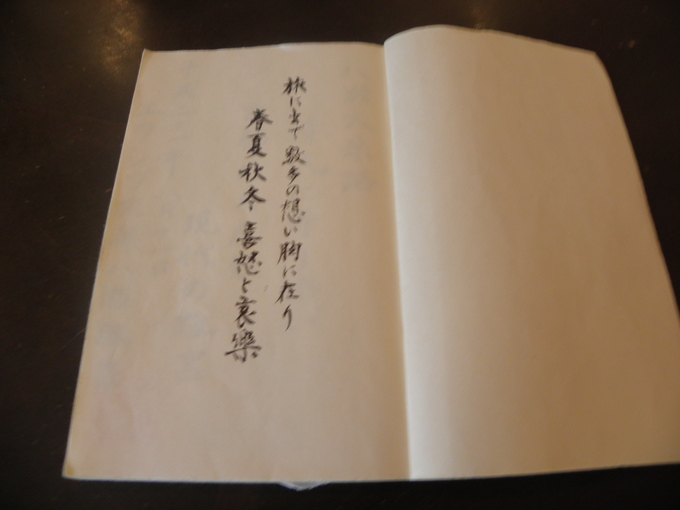 旅に出て数多の想い胸に在り
春夏秋冬喜怒と哀樂